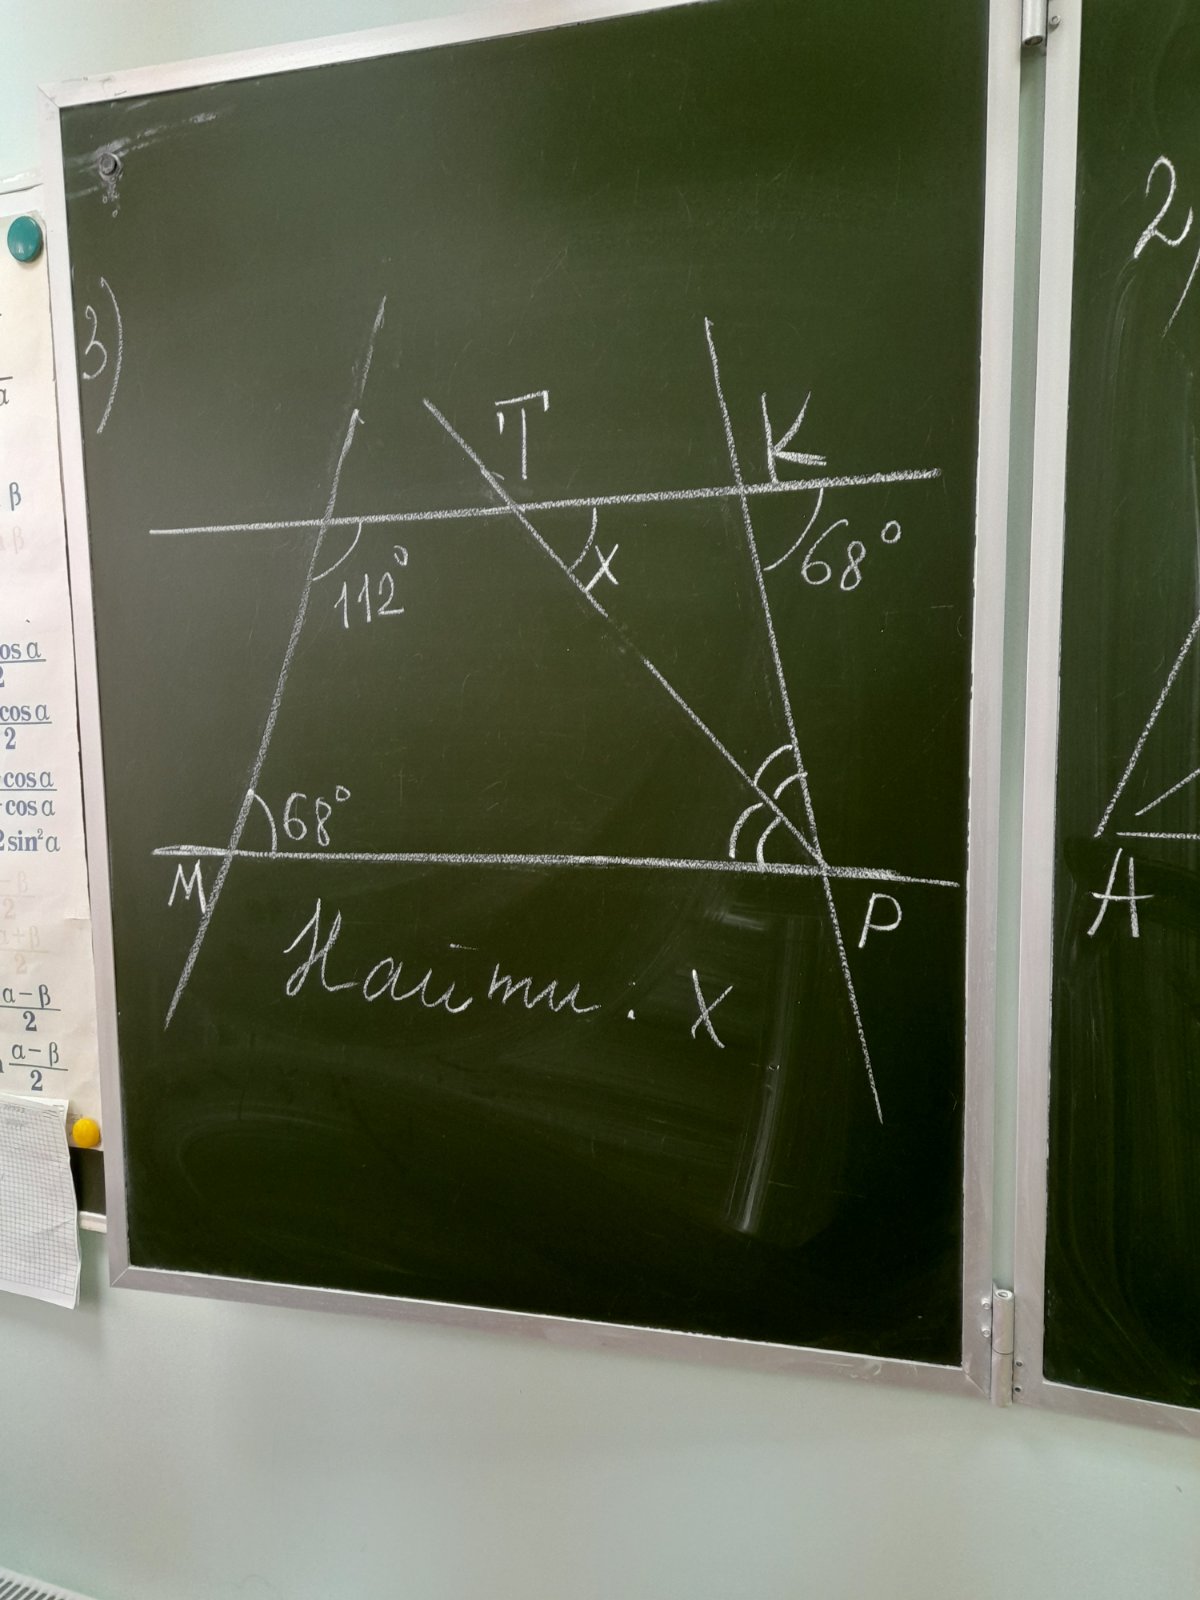 3)
T
K
112°
X
68°
68°
M
P
Найти: X
2)
A
α
β
cos α
2
cos α
2
cos α
cos α
2 sin² α
α - β
2
α - β
2